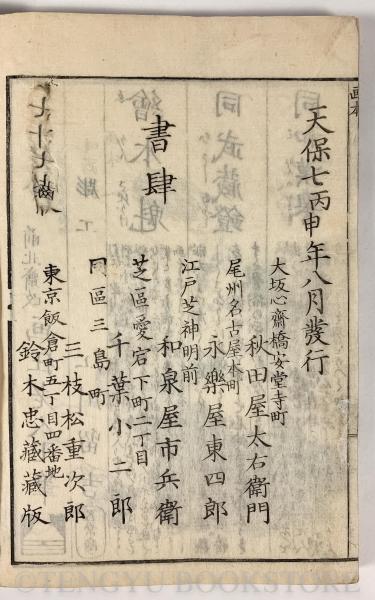 天保七丙申年八月發行
書肆
大坂心齋橋安堂寺町
秋田屋太右衛門
尾州名古屋本町
永樂屋東四郎
江戸芝神明前
和泉屋市兵衛
芝區愛宕下町二丁目
千葉小二郎
同區三島町
三枝松重次郎
東京飯倉町五丁目四番地
鈴木忠藏藏版
©TENGYU BOOKSTORE